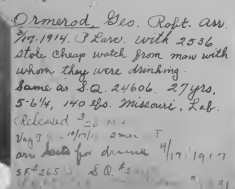 Ormerod, Geo. Robt. Arr.
3/17/1914. P. Larc. with 2536
Stole cheap watch from man with
whom they were drinking.
Same as S.Q. 24606. 27 yrs,
5-6 1/4, 140 lbs. Missouri, Lab.
Released
Vag
arr for drunk 4/17/1917
SF#265 S.Q.#